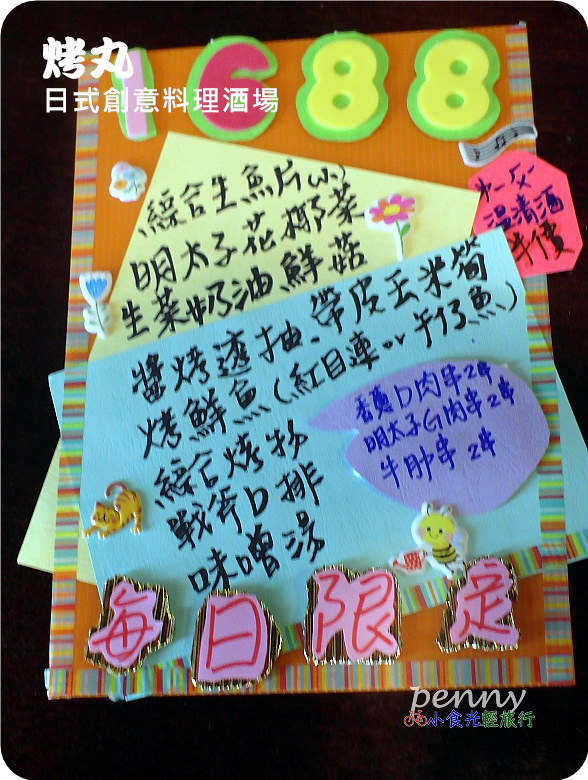 烤丸
日式創意料理酒場
1688
綜合生魚片(小)
明太子花椰菜
生菜奶油鮮菇
溫清酒
半價
醬烤透抽、帶皮玉米筍
烤鮮魚(紅目連or午仔魚)
綜合烤物
戰斧D排
味噌湯
香蔥D肉串2串
明太子G肉串2串
牛肋串 2串
每日限定
penny
小食光輕旅行